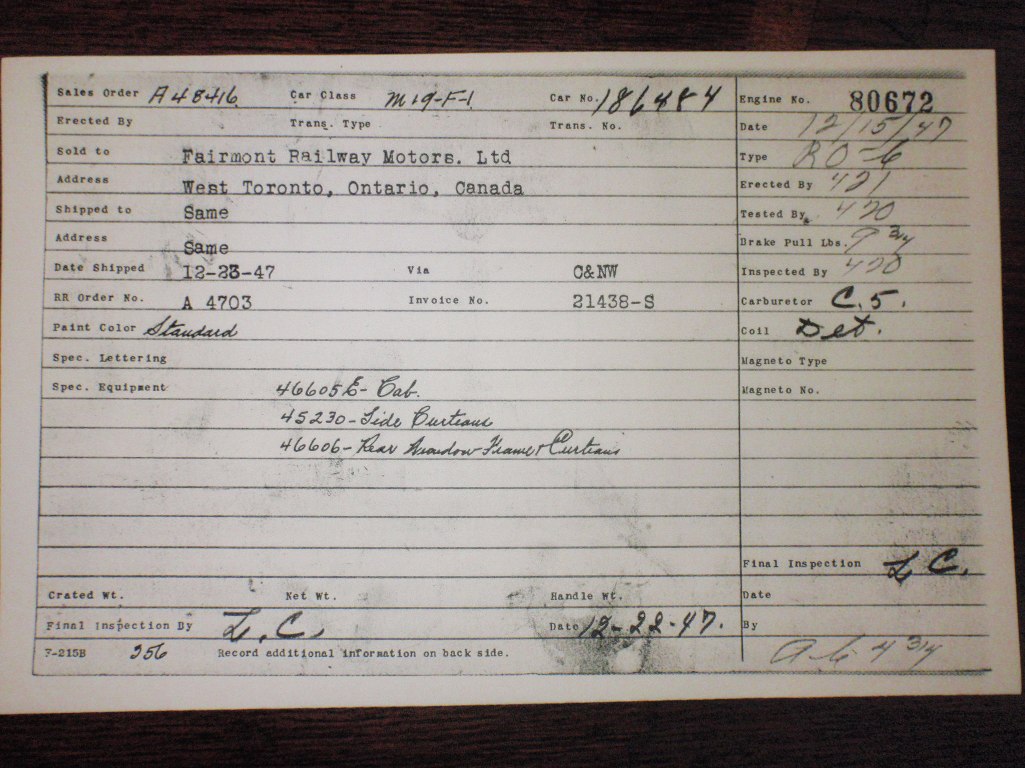 Sales Order A48416 Car Class M19-F-1 Car No. 186484 Engine No. 80672
Erected By Trans. Type Trans. No. Date 12/15/47
Sold to Fairmont Railway Motors. Ltd Type RO-6
Address West Toronto, Ontario, Canada Erected By 421
Shipped to Same Tested By 420
Address Same Brake Pull Lbs. 9 3/4
Date Shipped 12-23-47 Via C&NW Inspected By 420
RR Order No. A 4703 Invoice No. 21438-S Carburetor C.5.
Paint Color Standard Coil Det.
Spec. Lettering Magneto Type
Spec. Equipment 46605E- Cab. Magneto No.
45230-Side Curtains
46606- Rear Window Frame & Curtains
Final Inspection L.C.
Crated Wt. Net Wt. Handle Wt. Date
Final Inspection By L.C. Date 12-22-47. By
F-215B 356 Record additional information on back side. 4 3/4